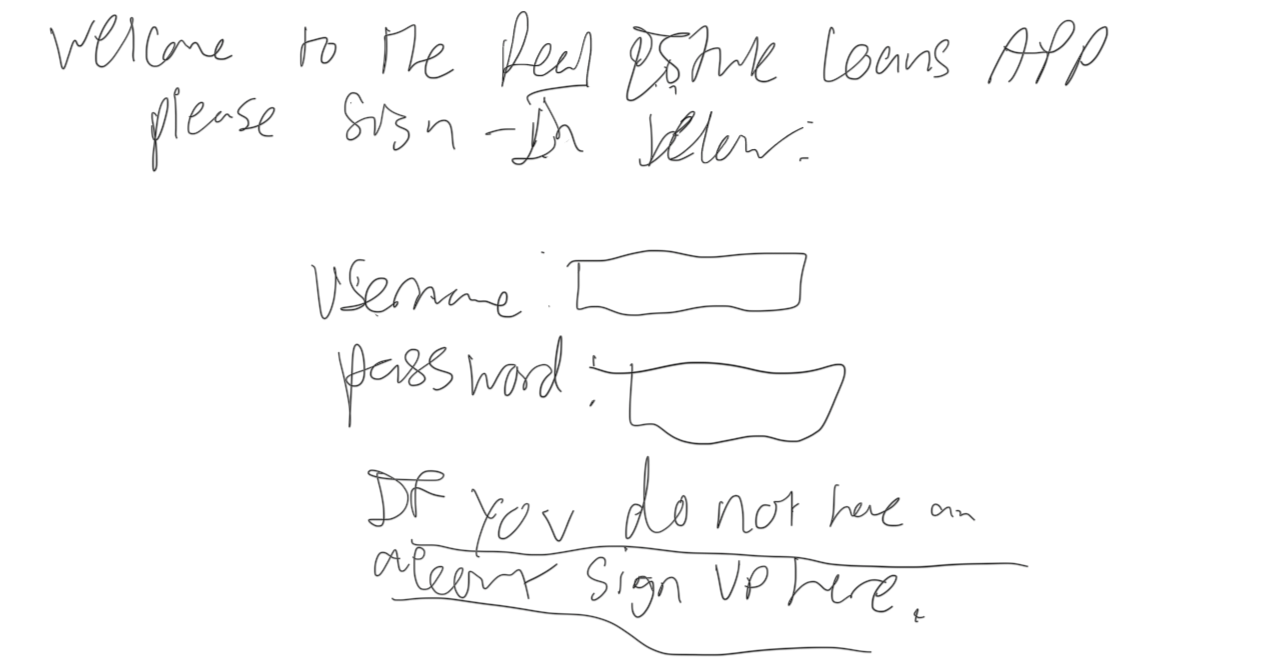 Welcome to the Real Estate Loans APP
please sign-In below:
Username:
password:
If you do not have an
account sign up here.